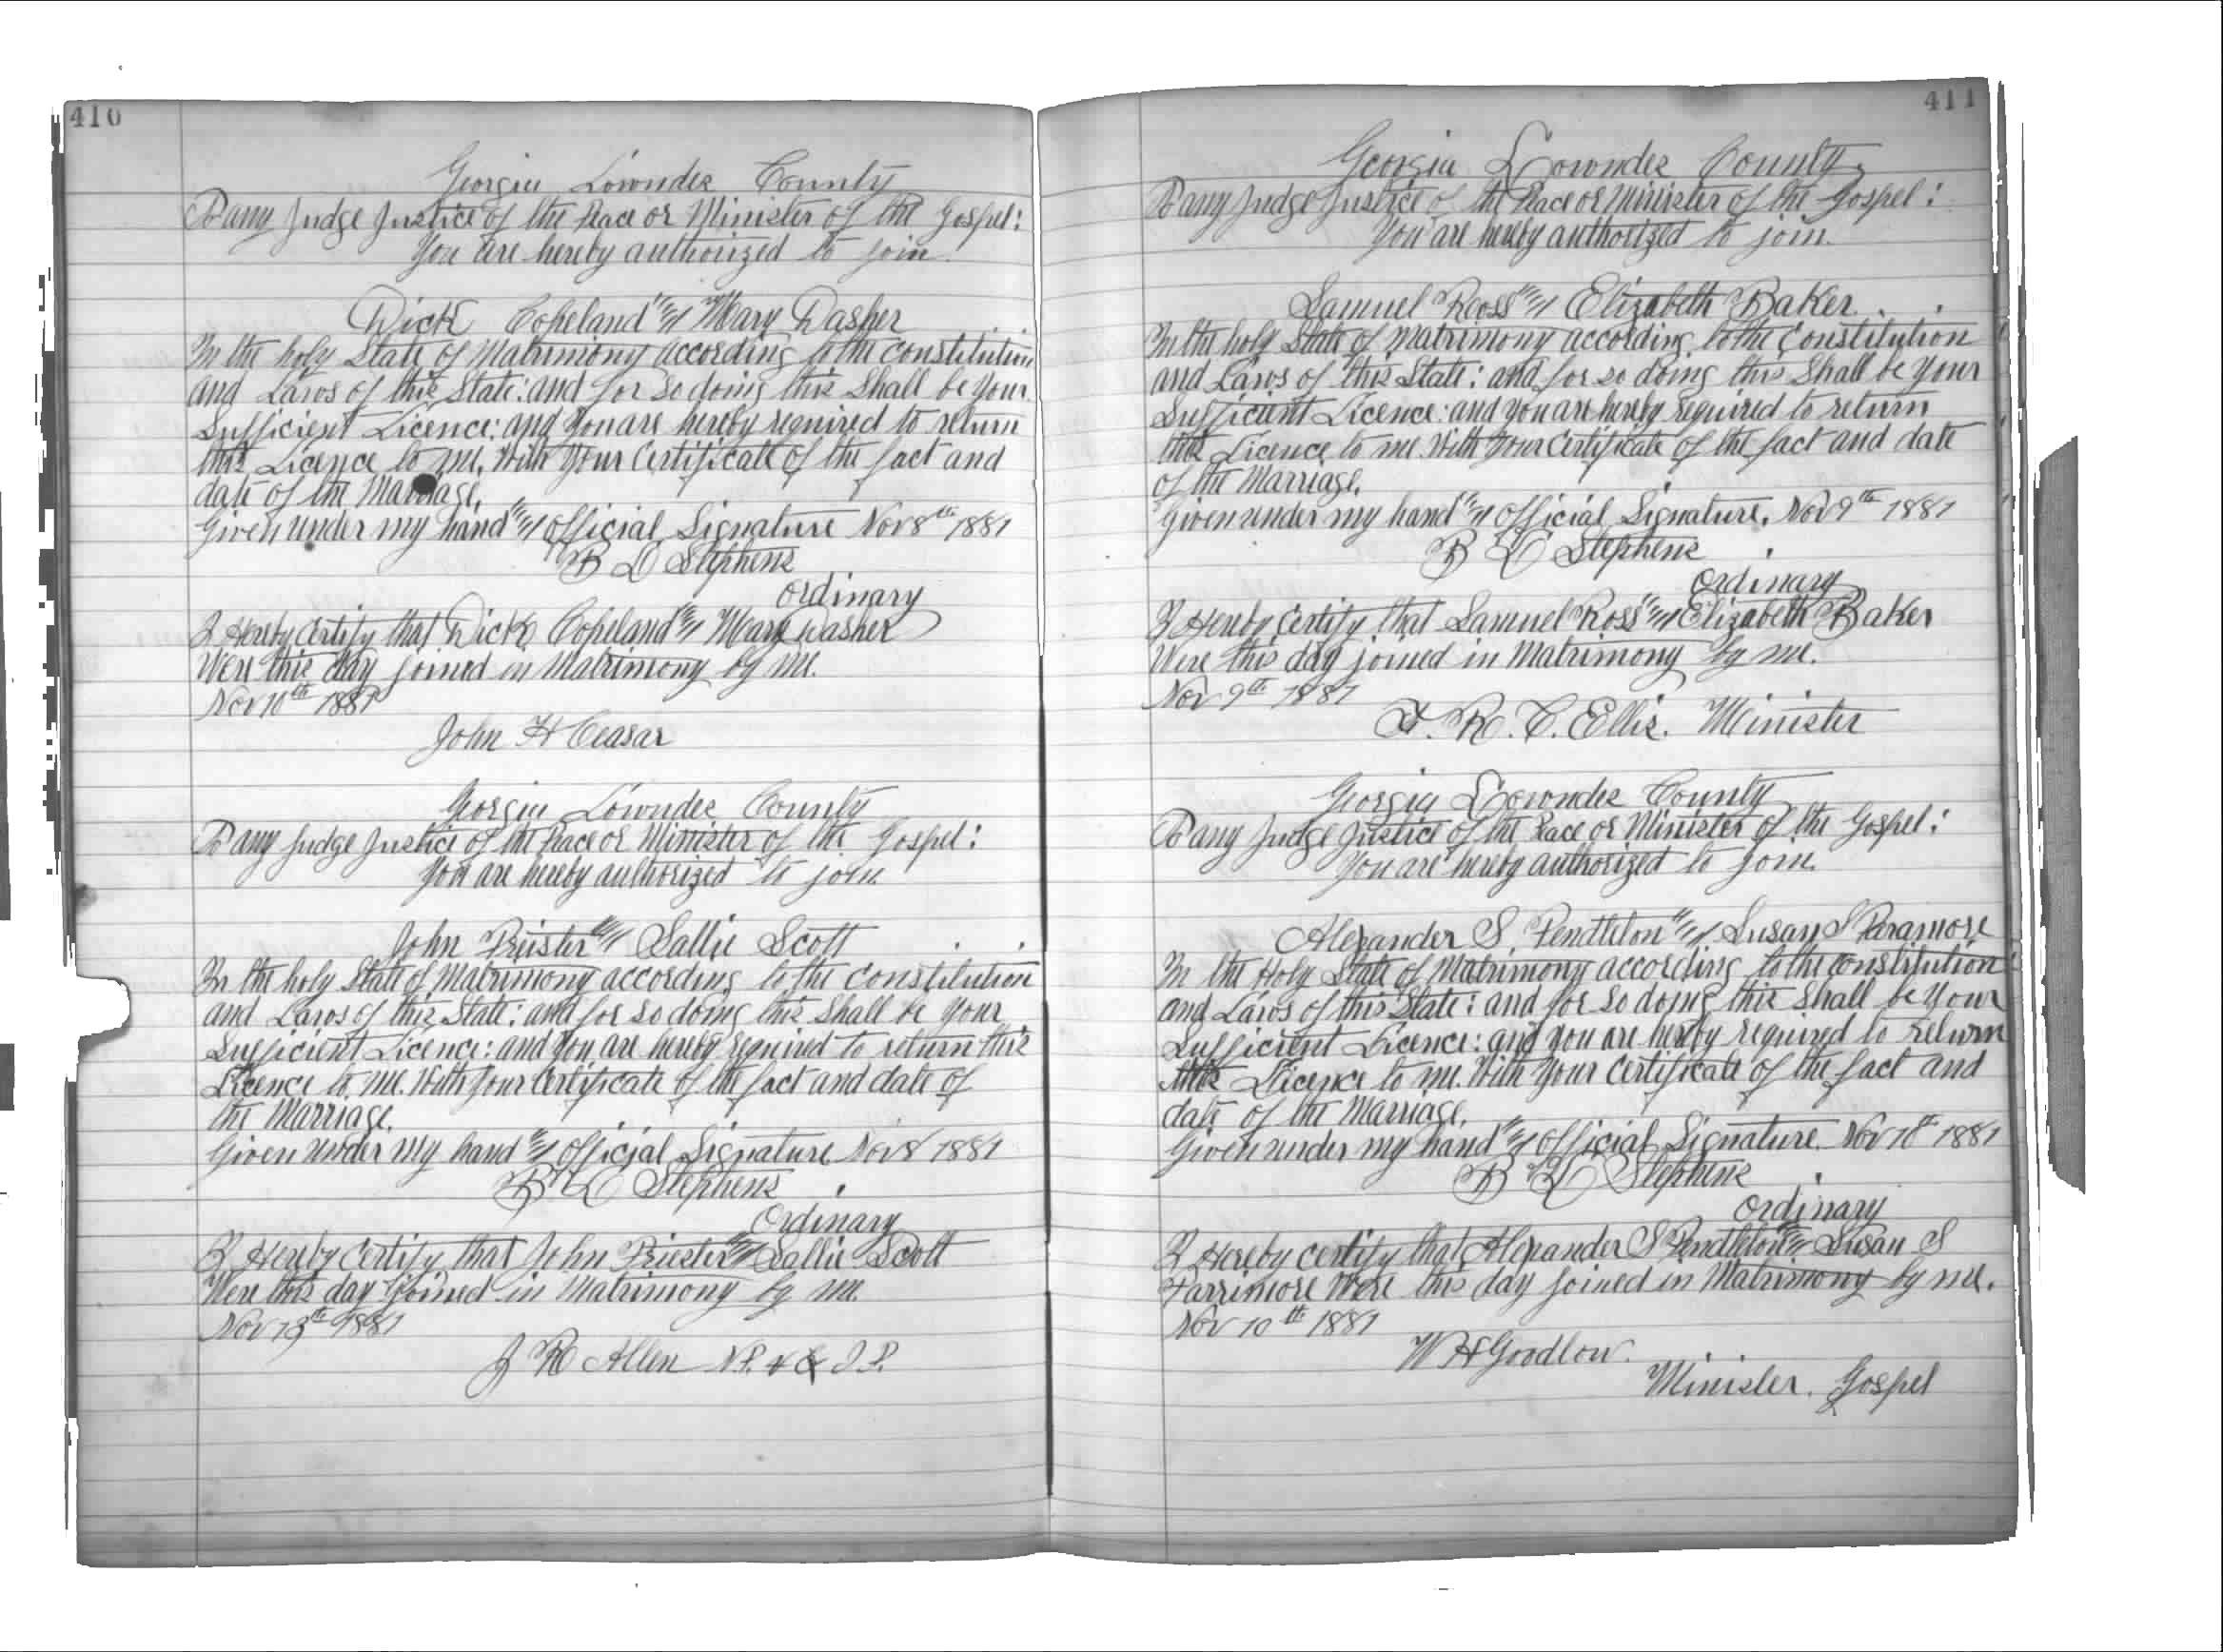 410
Georgia Lowndes County
To any Judge Justice of the Peace or Minister of the Gospel:
You are hereby authorized to join
Dick Copeland and Mary Dasher
In the holy State of Matrimony according to the constitution
and Laws of this State: and for so doing this Shall be Your
Sufficient Licence: and You are hereby required to return
this Licence to me, With Your Certificate of the fact and
date of the Marriage.
Given under my hand and Official Signature Nov 8th 1881
B L Stephens
Ordinary
I Hereby Certify that Dick Copeland and Mary Dasher
Were this day joined in Matrimony by me.
Nov 10th 1881
John H Ceasar
Georgia Lowndes County
To any Judge Justice of the Peace or Minister of the Gospel:
You are hereby authorized to join
John Priester and Sallie Scott
In the holy State of Matrimony according to the constitution
and Laws of this State: and for so doing this Shall be Your
Sufficient Licence: and You are hereby required to return this
Licence to me. With Your Certificate of the fact and date of
the Marriage.
Given under my hand and Official Signature Nov 8 1881
B L Stephens
Ordinary
I Hereby Certify that John Priester and Sallie Scott
Were this day joined in Matrimony by me.
Nov 13th 1881
J R Allen N.P. & J.P.
411
Georgia Lowndes County
To any Judge Justice of the Peace or Minister of the Gospel:
You are hereby authorized to join.
Samuel Ross and Elizabeth Baker.
In the holy State of Matrimony according to the Constitution
and Laws of this State: and for so doing this Shall be Your
Sufficient Licence: and you are hereby required to return
this Licence to me. With Your Certificate of the fact and date
of the Marriage.
Given under my hand and Official Signature. Nov 9th 1881
B L Stephens
Ordinary
I Hereby Certify that Samuel Ross and Elizabeth Baker
Were this day joined in Matrimony by me.
Nov 9th 1881
F. R. C. Ellis. Minister
Georgia Lowndes County
To any Judge Justice of the Peace or Minister of the Gospel:
You are hereby authorized to join.
Alexander S. Pendleton and Susan S Paramore
In the Holy State of Matrimony according to the constitution
and Laws of this State: and for so doing this Shall be Your
Sufficient Licence: and you are hereby required to return
this Licence to me. With Your Certificate of the fact and
date of the Marriage.
Given under my hand and Official Signature. Nov 10th 1881
B L Stephens
Ordinary
I Hereby Certify that Alexander S Pendleton and Susan S
Parrimore Were this day joined in Matrimony by me.
Nov 10th 1881
W H Goodlow.
Minister. Gospel